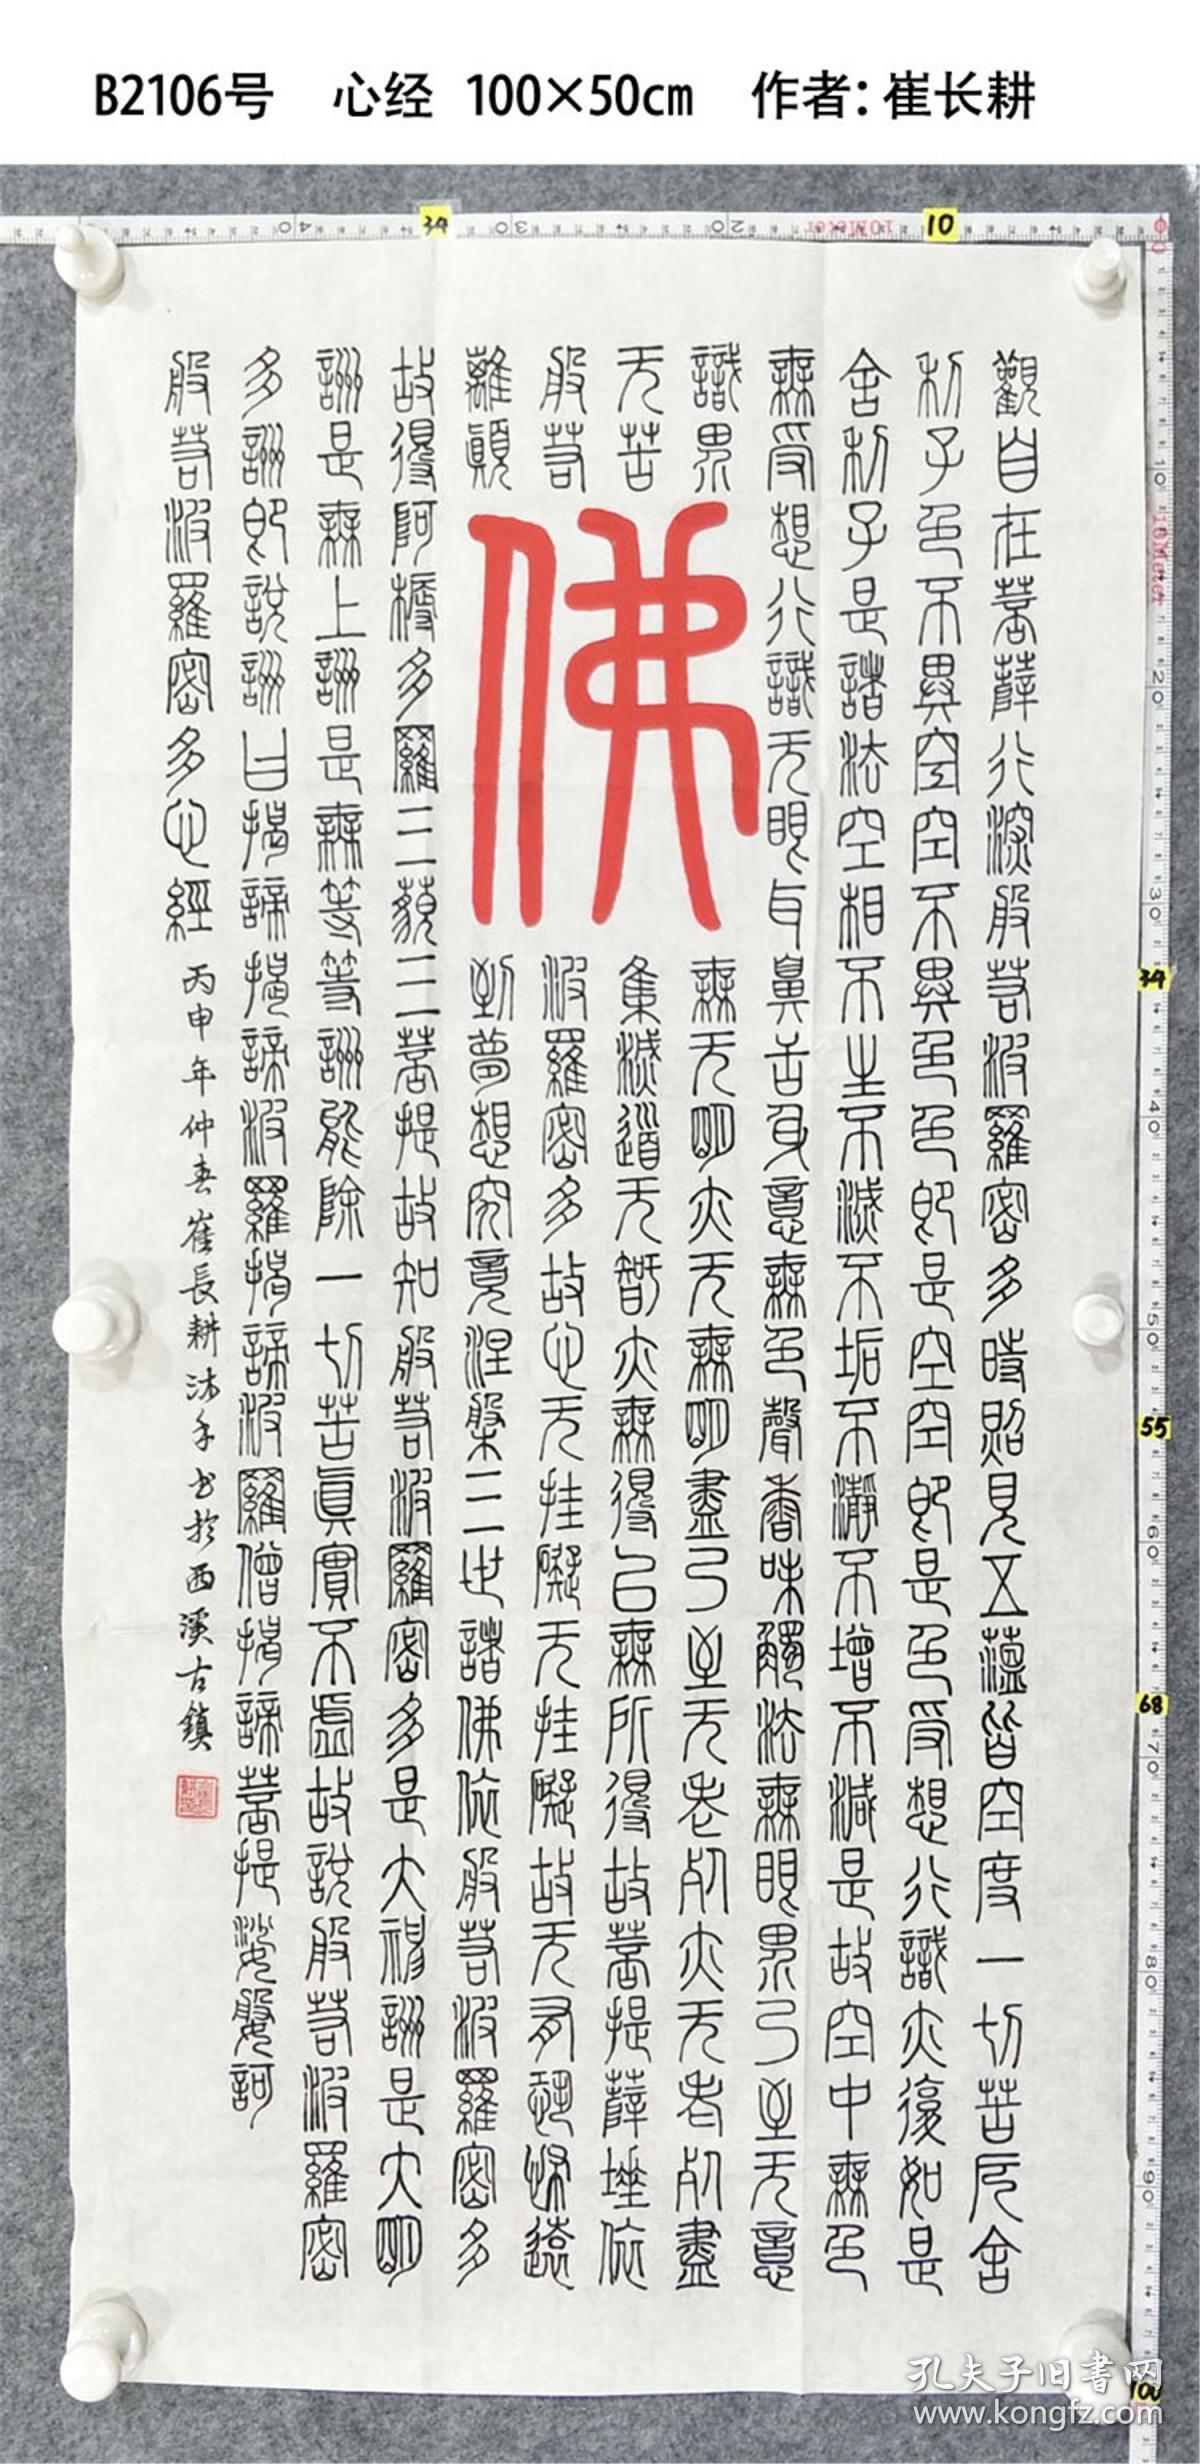 B2106号 心经 100×50cm 作者：崔长耕
觀自在菩薩行深般若波羅密多時照見五蘊皆空度一切苦厄舍
利子色不異空空不異色色即是空空即是色受想行識亦復如是
舍利子是諸法空相不生不滅不垢不瀞不增不減是故空中無色
無受想行識无眼耳鼻舌身意無色聲香味觸法無眼界乃至无意
識界無无明亦无無明盡乃至无老死亦无老死盡
无苦集滅道无智亦無得以無所得故菩提薩埵依
般若波羅密多故心无挂礙无挂礙故无有恐怖遠
離顛倒夢想究竟涅槃三世諸佛依般若波羅密多
佛
故得阿耨多羅三藐三菩提故知般若波羅密多是大神詶是大明
詶是無上詶是無等等詶能除一切苦真實不虛故說般若波羅密
多詶即說詶曰揭諦揭諦波羅揭諦波羅僧揭諦菩提娑婆訶
般若波羅密多心經
丙申年仲春崔長耕沐手书於西溪古鎮
10Meter
10Meter
10
34
34
55
68
100
孔夫子旧书网
www.kongfz.com